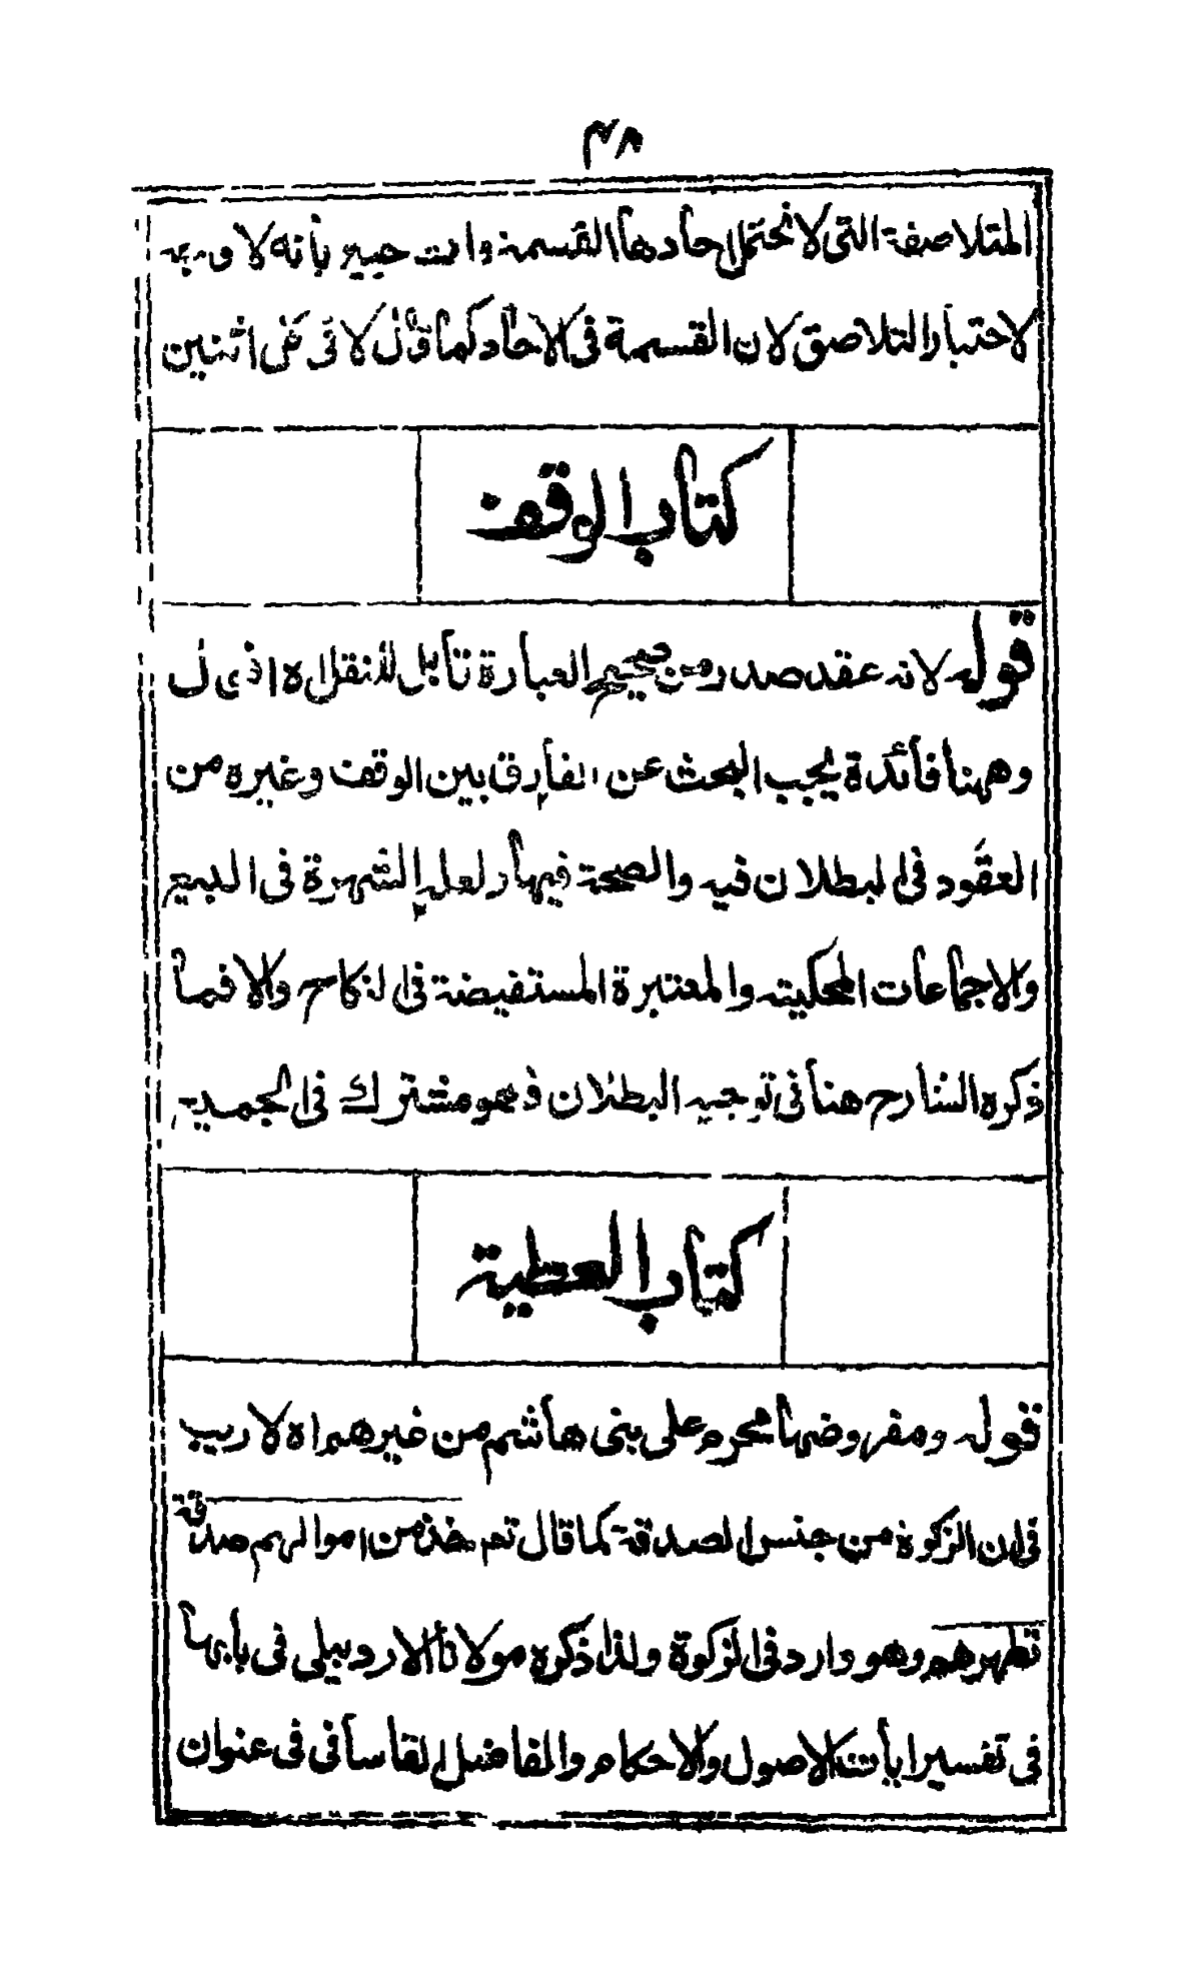 ٣٨
المتلاصقة التى لا تحتمل احادها القسمة وانت خبير بأنه لا وجه
لاعتبار التلاصق لان القسمة فى الاحاد كما قال لا فى كل اثنين
كتاب الوقف
قوله لانه عقد صدر من صحيح العبارة قابل للنقل اه اقول
وههنا فائدة يجب البحث عن الفارق بين الوقف وغيره من
العقود فى البطلان فيه والصحة فيها ولعله الشهرة فى البيع
والاجماعات المحكيته والمعتبرة المستفيضة فى النكاح والا فما
ذكره الشارح هنا فى توجيه البطلان فهو مشترك فى الجميع
كتاب العطية
قوله ومفروضها محرم على بنى هاشم من غيرهم اه لا ريب
فى ان الزكوة من جنس الصدقة كما قال تع خذ من اموالهم صدقة
تطهرهم وهو وارد فى الزكوة ولذا ذكره مولانا الاردبيلى فى بابها
فى تفسير ايات الاصول والاحكام والفاضل القاسانى فى عنوان